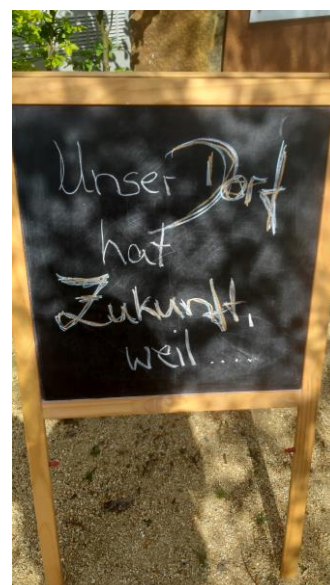 Unser Dorf
hat
Zukunft,
weil....